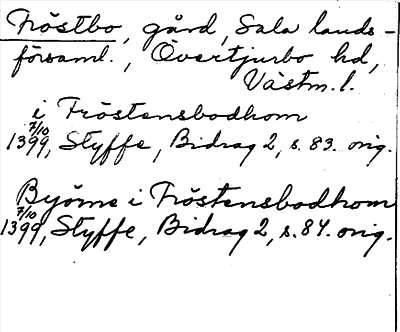 Fröstbo, gård, Sala lands-
församl., Övertjurbo hd,
Västm. l.
i Fröstensbodhom
7/10
1399, Styffe, Bidrag 2, s. 83. orig.
Byörns i Fröstensbodhom
7/10
1399, Styffe, Bidrag 2, s. 84. orig.